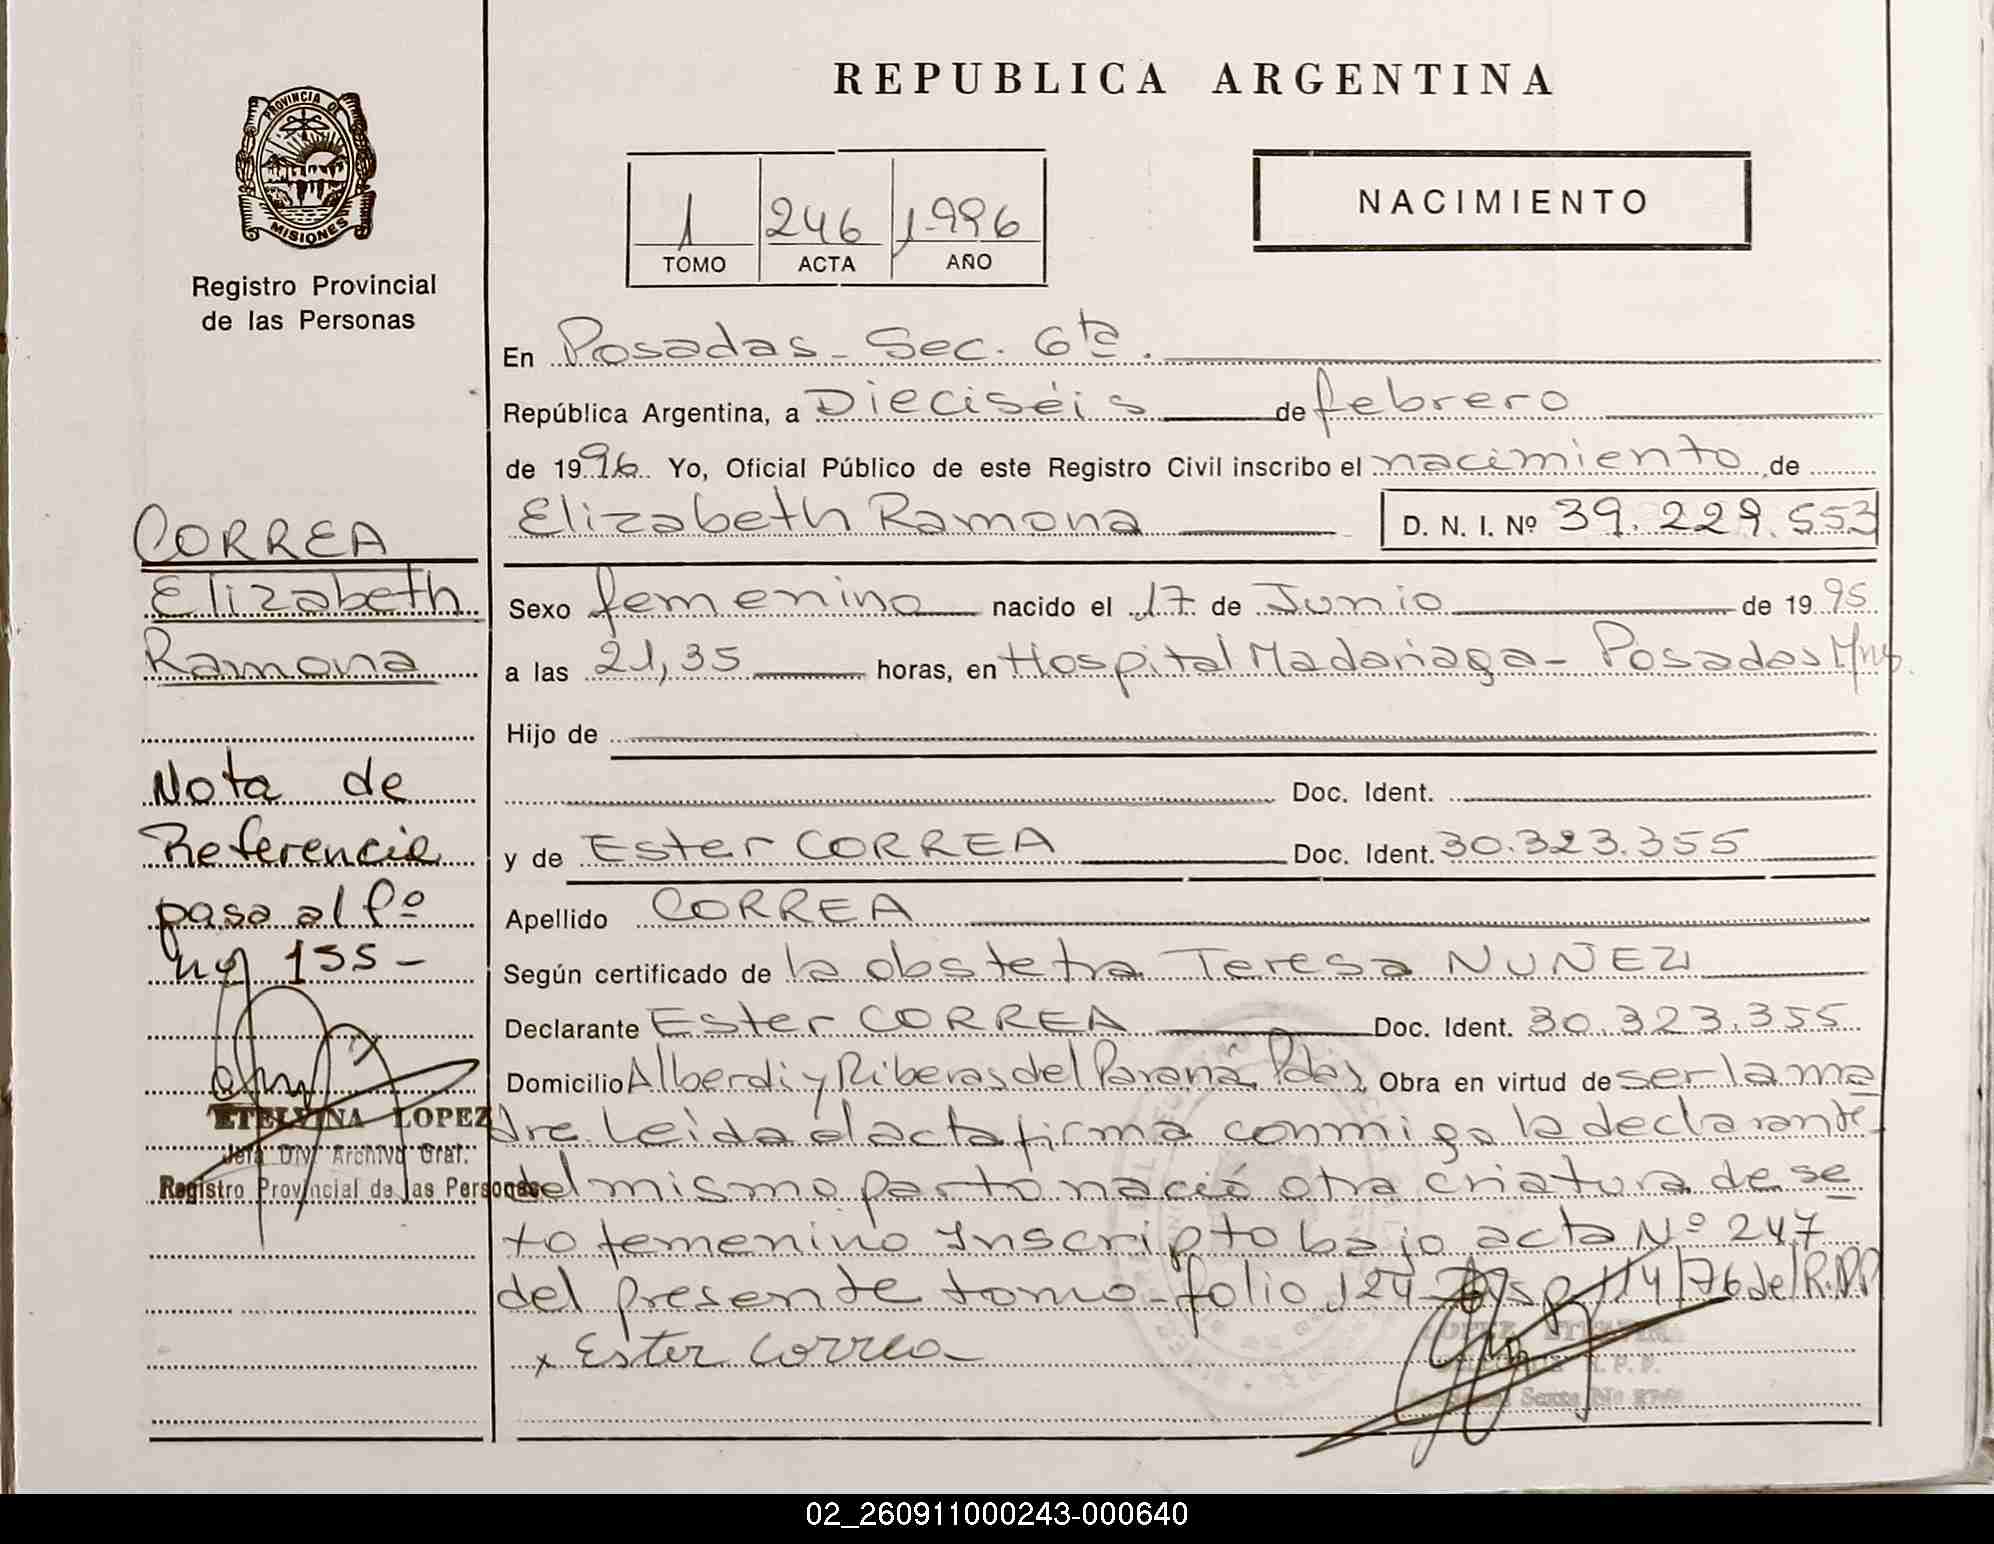 REPUBLICA ARGENTINA
PROVINCIA DE
MISIONES
Registro Provincial
de las Personas
1 246 1.996
TOMO ACTA AÑO
NACIMIENTO
En Posadas - Sec. 6ta.
República Argentina, a Dieciséis de febrero
de 1996. Yo, Oficial Público de este Registro Civil inscribo el nacimiento de
Elizabeth Ramona D. N. I. Nº 39.229.553
Sexo femenino nacido el 17 de Junio de 1995
a las 21,35 horas, en Hospital Madariaga - Posadas Mnes.
Hijo de
Doc. Ident.
y de Ester CORREA Doc. Ident. 30.323.355
Apellido CORREA
Según certificado de la obstetra Teresa NUÑEZ
Declarante Ester CORREA Doc. Ident. 30.323.355
Domicilio Alberdi y Riberas del Paraná Pdas, Obra en virtud de ser la ma
dre Leida el acta firma conmigo la declarante
del mismo parto nació otra criatura de se
xo femenino Inscripto bajo acta Nº 247
del presente tomo - folio 124 - Disp 114/76 del R.P.P
x Ester Correa
CORREA
Elizabeth
Ramona
Nota de
Referencia
pasa al fº
nº 155 -
ETELVINA LOPEZ
Jefa Div. Archivo Gral.
Registro Provincial de las Personas
LOPEZ ETELVINA
R.P.P.
02_260911000243-000640